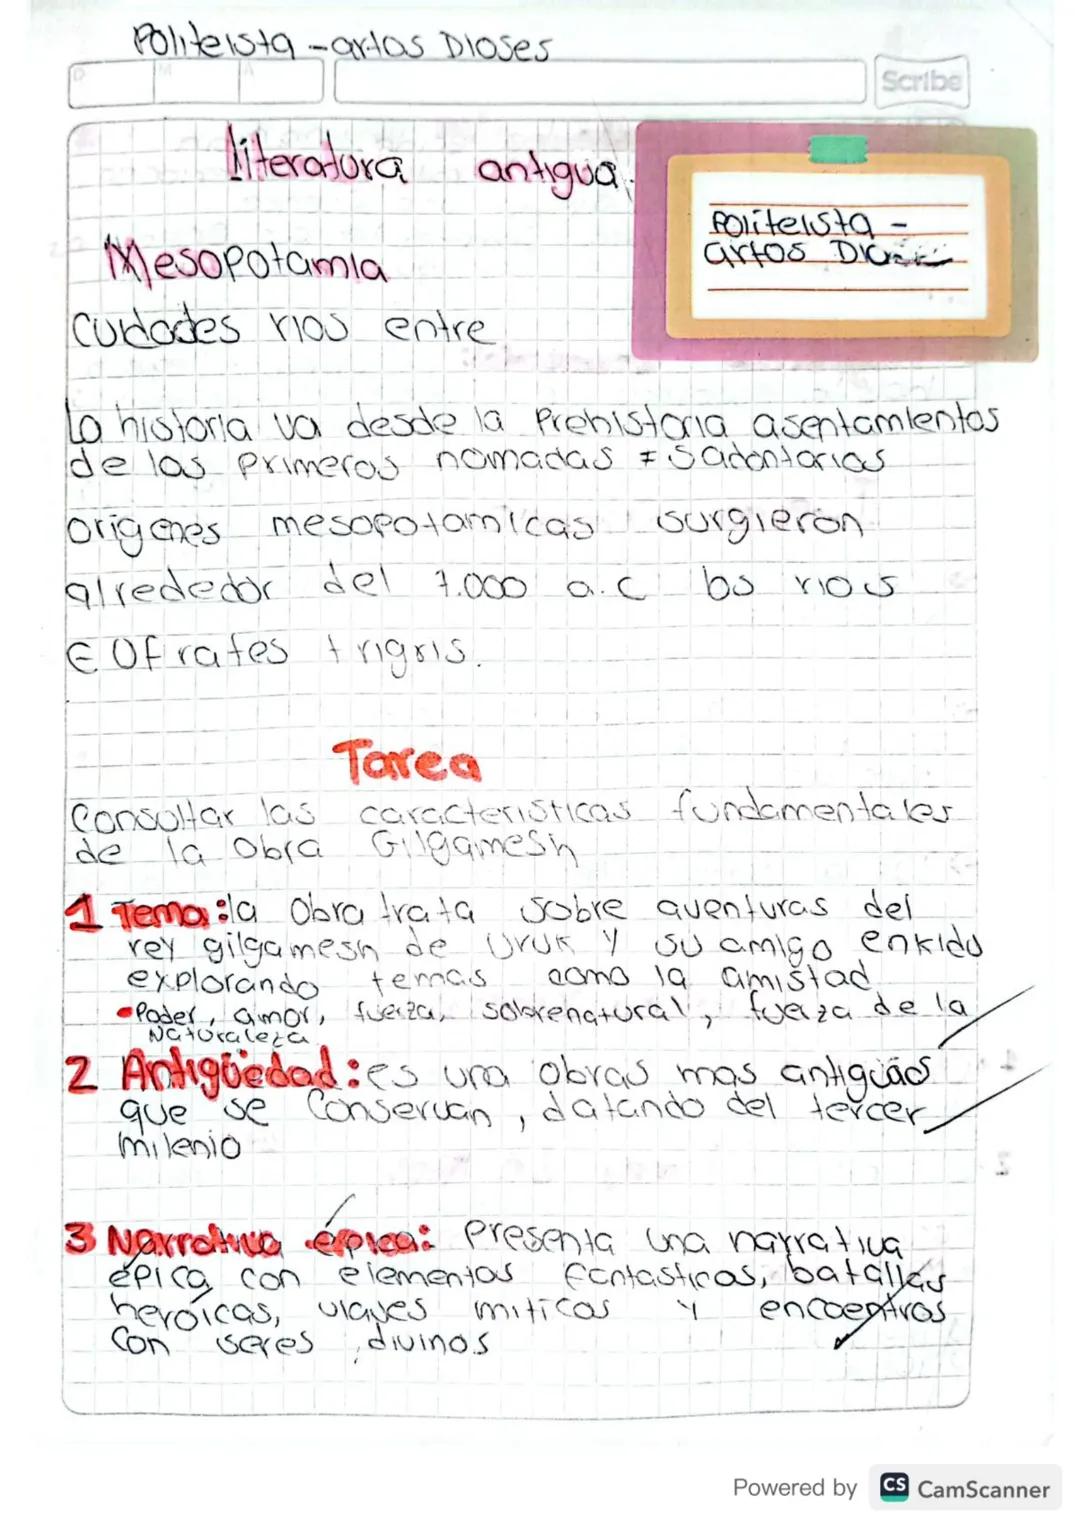 Politeista - artos Dioses
D M A
Scribe
literatura antigua.
Politeista -
artos
Mesopotamia
Cuidades rios entre
La historia va desde la Prehistoria asentamientos
de los primeros nomadas ≠ Sadentarios
origenes mesopotamicas surgieron
alrededor del 7.000 a.c los rios
EUfrates trigris.
Tarea
Consultar las caracteristicas fundamentales
de la obra Gilgamesh
1 Tema: la Obra trata sobre aventuras del
rey gilgamesh de Uruk y su amigo enkidu
explorando temas como la amistad
•Poder, amor, fuerza, sobrenatural, fuerza de la
Naturaleza
2 Antigüedad: es una obras mas antiguas
que se Conservan, datando del tercer
milenio
3 Narrativa épica: Presenta una narrativa
épica con elementos fantasticos, batallas
heroícas, viajes miticos y encoentros
Con seres divinos
Powered by CS CamScanner